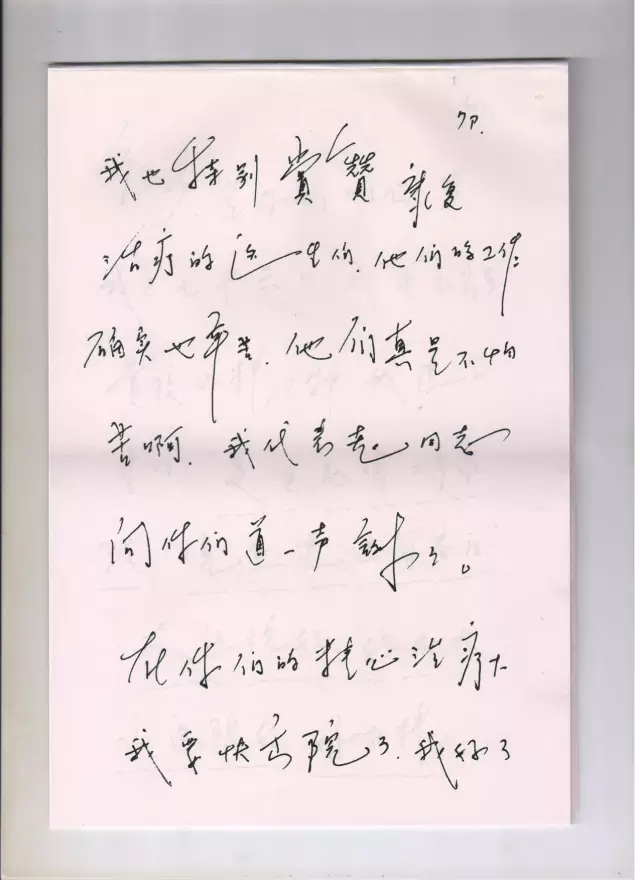 7P.
我也特别赏赞康复
治疗的医生们.他们的工作
确实也辛苦.他们真是不怕
苦啊.我代表老同志
向你们道一声谢了。
在你们的精心治疗下
我要快出院了.我好了